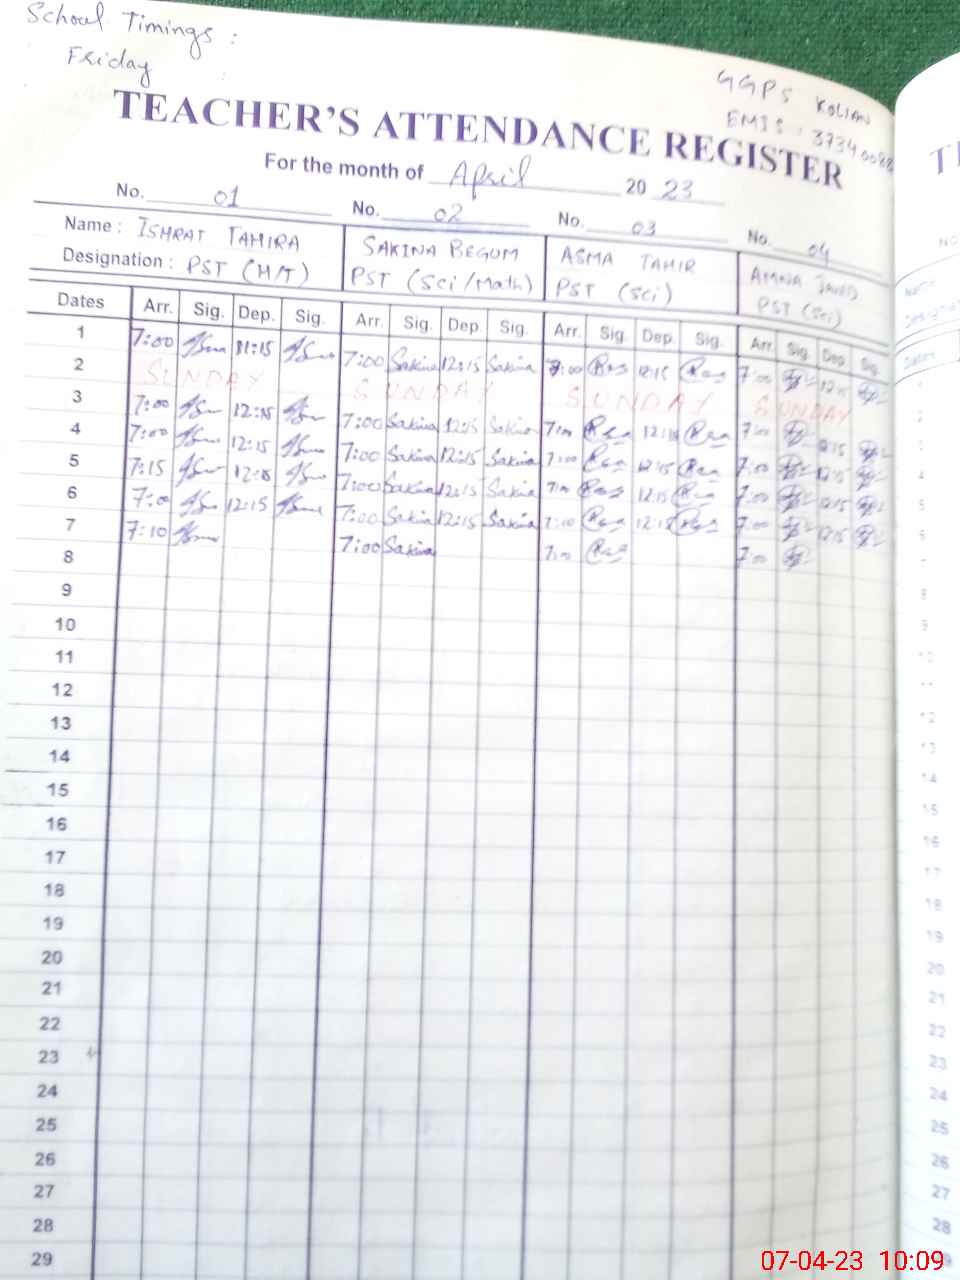 School Timings :
Friday
GGPS KOLIAN
EMIS : 37340088
TEACHER'S ATTENDANCE REGISTER
For the month of April 2023
No. 01 No. 02 No. 03 No. 04
Name : ISHRAT TAHIRA SAKINA BEGUM ASMA TAHIR AMNA JAVED
Designation : PST (M/T) PST (Sci/Math) PST (Sci) PST (Sci)
Dates Arr. Sig. Dep. Sig. Arr. Sig. Dep. Sig. Arr. Sig. Dep. Sig. Arr. Sig. Dep. Sig.
1 7:00 11:15 7:00 Sakina 12:15 Sakina 7:00 12:15 7:00 12:15
2 SUNDAY SUNDAY SUNDAY SUNDAY
3 7:00 12:15 7:00 Sakina 12:15 Sakina 7:00 12:15 7:00 12:15
4 7:00 12:15 7:00 Sakina 12:15 Sakina 7:00 12:15 7:00 12:15
5 7:15 12:15 7:00 Sakina 12:15 Sakina 7:00 12:15 7:00 12:15
6 7:00 12:15 7:00 Sakina 12:15 Sakina 7:00 12:15 7:00 12:15
7 7:10 7:00 Sakina 7:00 7:00
8
9
10
11
12
13
14
15
16
17
18
19
20
21
22
23
24
25
26
27
28
29
07-04-23 10:09